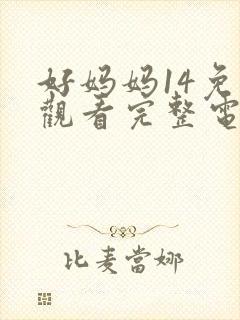 好妈妈14免
觀看完整電
比麦當娜